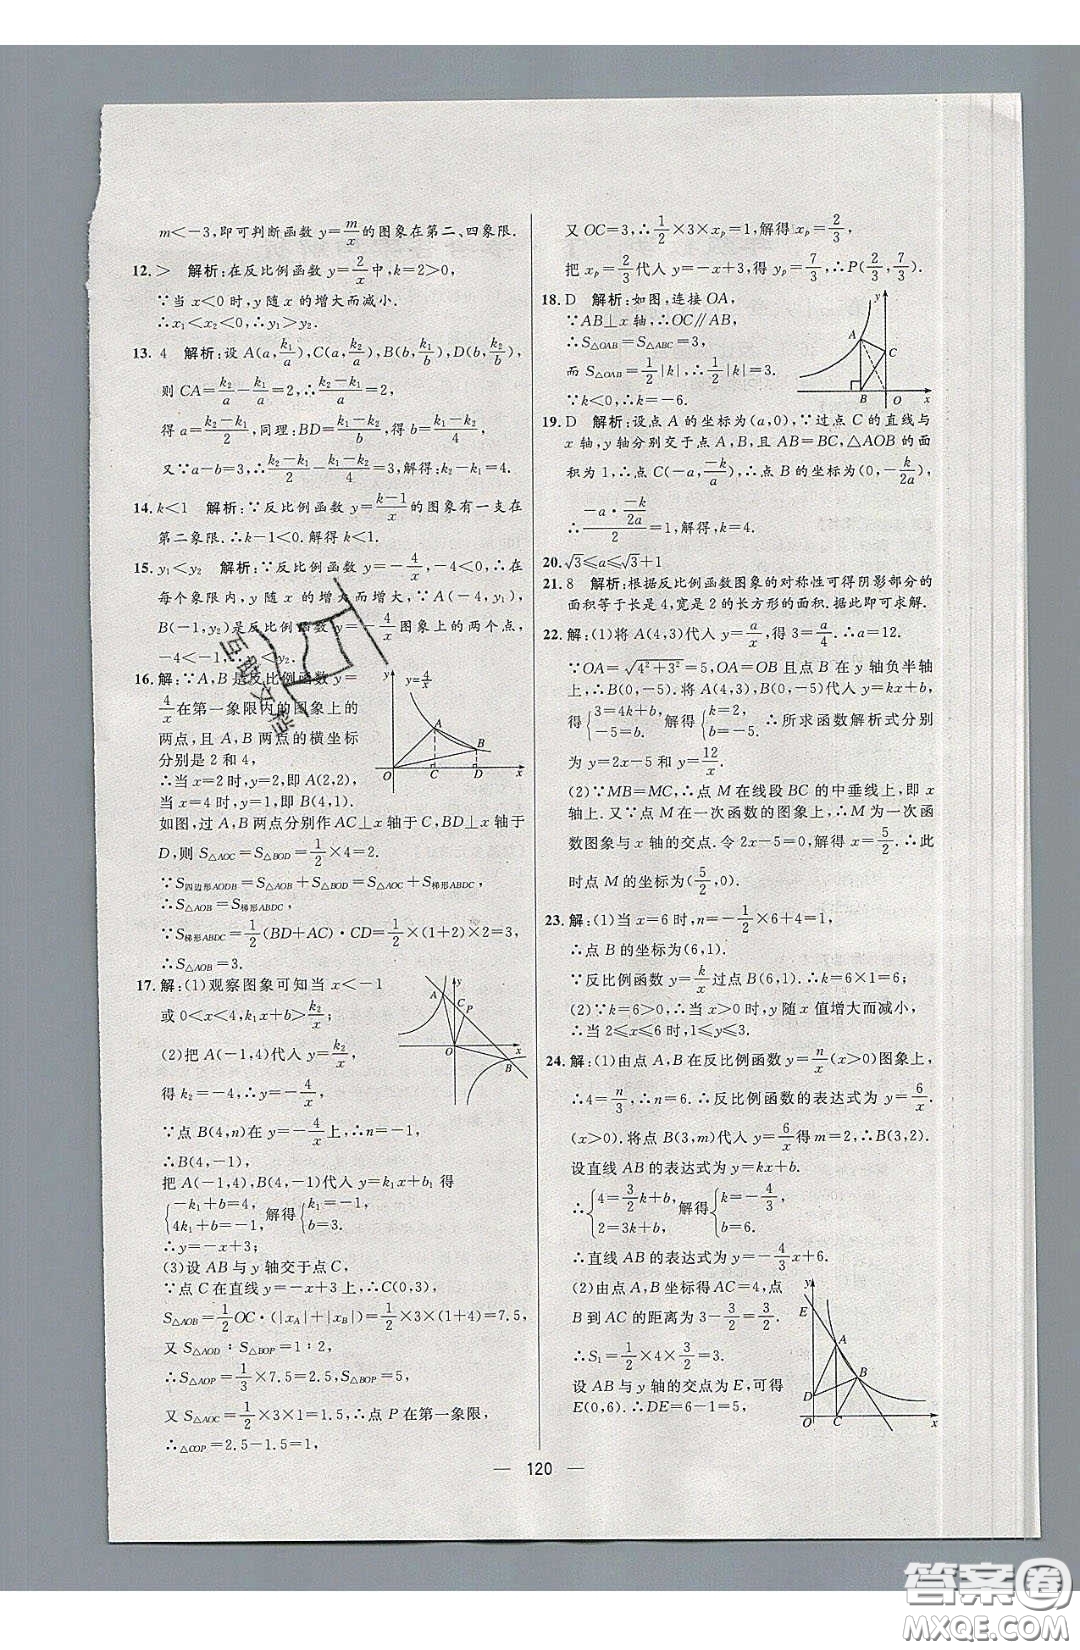 m<-3,即可判断函数y=m/x的图象在第二、四象限.
12.> 解析:在反比例函数y=2/x中,k=2>0,
∵当x<0时,y随x的增大而减小.
∴x₁<x₂<0,∴y₁>y₂.
13. 4 解析:设A(a,k₁/a),C(a,k₂/a),B(b,k₁/b),D(b,k₂/b),
则CA=k₂/a-k₁/a=2,∴(k₂-k₁)/a=2,
得a=(k₂-k₁)/2,同理:BD=(k₁-k₂)/b,得b=(k₁-k₂)/4,
又∵a-b=3,∴(k₂-k₁)/2-(k₁-k₂)/4=3,解得:k₂-k₁=4.
14.k<1 解析:∵反比例函数y=(k-1)/x的图象有一支在
第二象限.∴k-1<0.解得k<1.
15.y₁<y₂ 解析:∵反比例函数y=-4/x,-4<0,∴在
每个象限内,y随x的增大而增大,∵A(-4,y₁),
B(-1,y₂)是反比例函数y=-4/x图象上的两个点,
-4<-1,∴y₁<y₂.
16.解:∵A,B是反比例函数y=
4/x在第一象限内的图象上的
两点,且A,B两点的横坐标
分别是2和4,
∴当x=2时,y=2,即A(2,2),
当x=4时,y=1,即B(4,1).
如图,过A,B两点分别作AC⊥x轴于C,BD⊥x轴于
D,则S△AOC=S△BOD=1/2×4=2.
∵S四边形AODB=S△AOB+S△BOD=S△AOC+S梯形ABDC,
∴S△AOB=S梯形ABDC,
∵S梯形ABDC=1/2(BD+AC)·CD=1/2×(1+2)×2=3,
∴S△AOB=3.
17.解:(1)观察图象可知当x<-1
或0<x<4,k₁x+b>k₂/x;
(2)把A(-1,4)代入y=k₂/x,
得k₂=-4,∴y=-4/x,
∵点B(4,n)在y=-4/x上,∴n=-1,
∴B(4,-1),
把A(-1,4),B(4,-1)代入y=k₁x+b₁得
{-k₁+b=4, 4k₁+b=-1,解得{k₁=-1, b=3.
∴y=-x+3;
(3)设AB与y轴交于点C,
∵点C在直线y=-x+3上,∴C(0,3),
S△AOB=1/2OC·(|xA|+|xB|)=1/2×3×(1+4)=7.5,
又S△AOD:S△BOP=1:2,
∴S△AOP=1/3×7.5=2.5,S△BOP=5,
又S△AOC=1/2×3×1=1.5,∴点P在第一象限,
∴△COP=2.5-1.5=1,
又OC=3,∴1/2×3×xp=1,解得xp=2/3,
把xp=2/3代入y=-x+3,得yp=7/3,∴P(2/3,7/3).
18.D 解析:如图,连接OA,
∵AB⊥x轴,∴OC∥AB,
∴S△OAB=S△ABC=3,
而S△OAB=1/2|k|,∴1/2|k|=3.
∵k<0,∴k=-6.
19.D 解析:设点A的坐标为(a,0),∵过点C的直线与
x轴,y轴分别交于点A,B,且AB=BC,△AOB的面
积为1,∴点C(-a,-k/a),∴点B的坐标为(0,-k/2a),
∴(-a·(-k/2a))/2=1,解得,k=4.
20.√3≤a≤√3+1
21.8 解析:根据反比例函数图象的对称性可得阴影部分的
面积等于长是4,宽是2的长方形的面积.据此即可求解.
22.解:(1)将A(4,3)代入y=a/x,得3=a/4.∴a=12.
∵OA=√(4²+3²)=5,OA=OB且点B在y轴负半轴
上,∴B(0,-5).把A(4,3)、B(0,-5)代入y=kx+b,
得{3=4k+b, -5=b.解得{k=2, b=-5.∴所求函数解析式分别
为y=2x-5和y=12/x.
(2)∵MB=MC,∴点M在线段BC的中垂线上,即x
轴上.又∵点M在一次函数的图象上,∴M为一次函
数图象与x轴的交点.令2x-5=0,解得x=5/2.∴此
时点M的坐标为(5/2,0).
23.解:(1)当x=6时,n=-1/2×6+4=1,
∴点B的坐标为(6,1).
∵反比例函数y=k/x过点B(6,1),∴k=6×1=6;
(2)∵k=6>0,∴当x>0时,y随x值增大而减小,
∴当2≤x≤6时,1≤y≤3.
24.解:(1)由点A,B在反比例函数y=n/x(x>0)图象上,
∴4=n/(3/2),∴n=6.∴反比例函数的表达式为y=6/x
(x>0).将点B(3,m)代入y=6/x得m=2,∴B(3,2).
设直线AB的表达式为y=kx+b.
∴{4=3/2k+b, 2=3k+b,解得{k=-4/3, b=6.
∴直线AB的表达式为y=-4/3x+6.
(2)由点A,B坐标得AC=4,点
B到AC的距离为3-3/2=3/2,
∴S₁=1/2×4×3/2=3.
设AB与y轴的交点为E,可得
E(0,6).∴DE=6-1=5,
— 120 —
答案圈
MXQE.COM